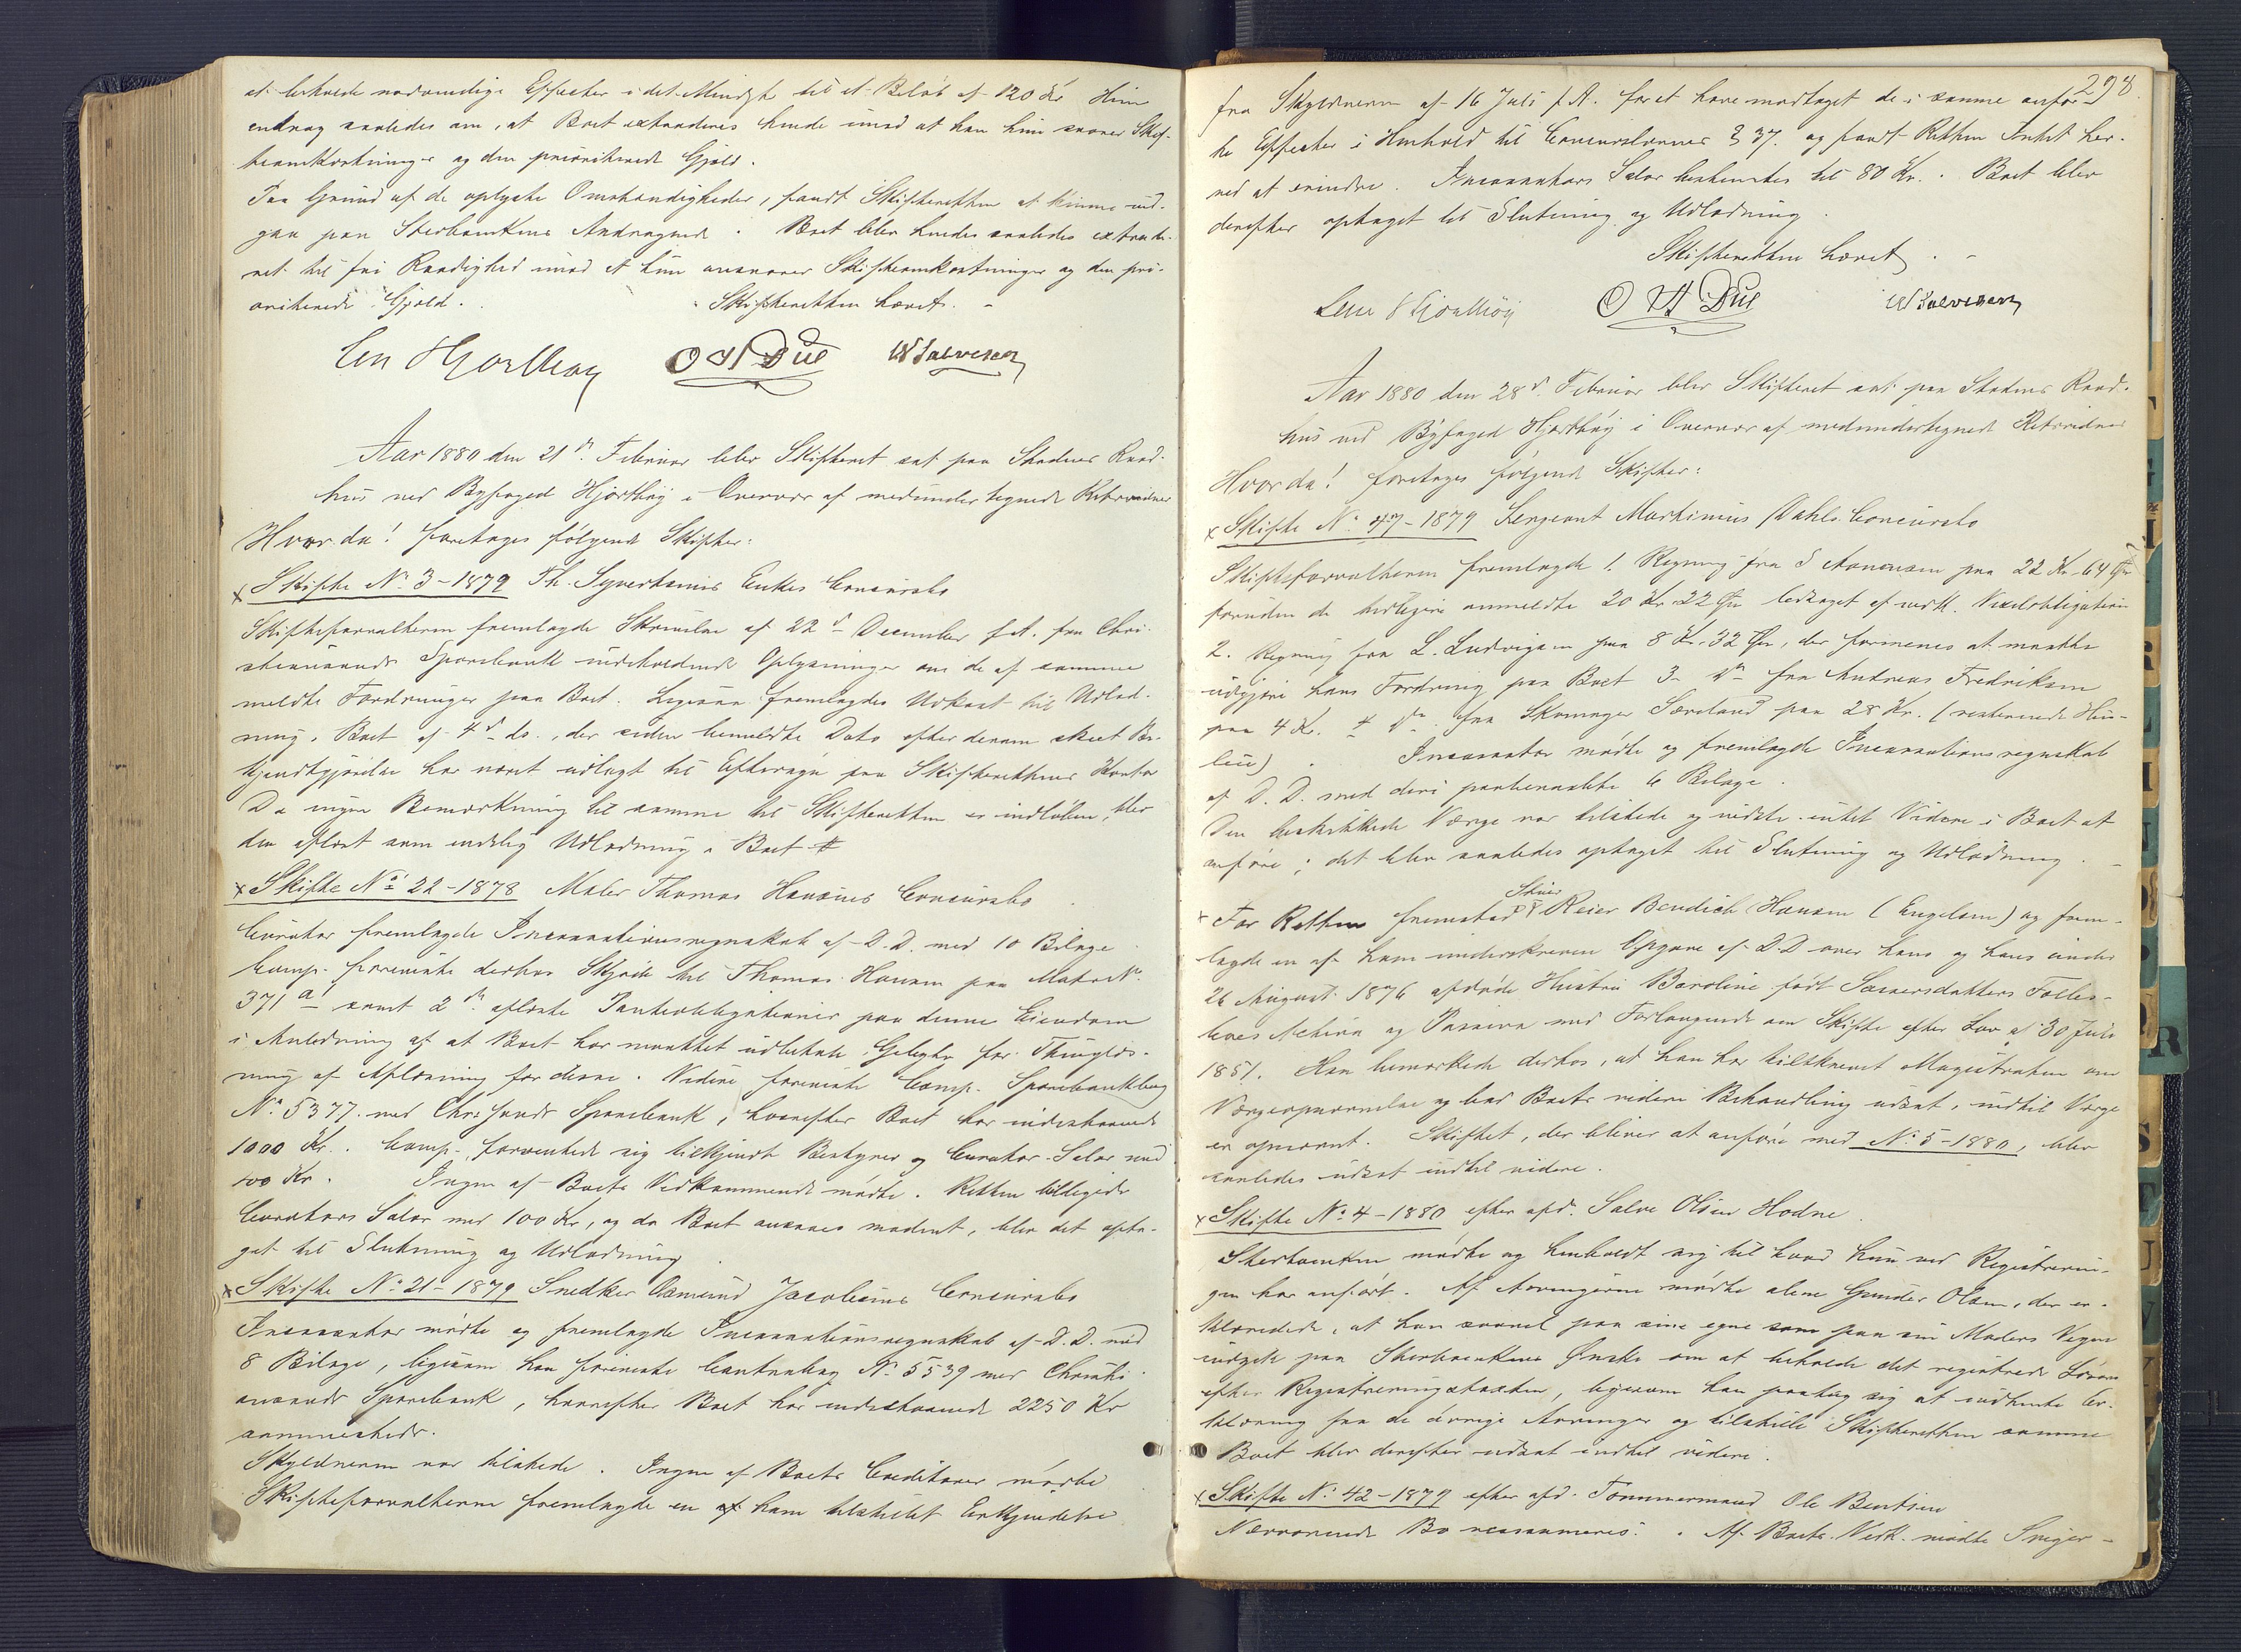 at beholde nødvendige Effecter i det Mindste til et Beløb af 120 Kr Hun
androg saaledes om, at Boet extraderes hende imod at hun kun svarer Skif-
teomkostninger og den prioriterede Gjæld.
Paa Grund af de oplyste Omstændigheder, fandt Skifteretten at kunne ind-
gaa paa Sterboenkens Andragende. Boet blev hende saaledes extrade-
ret til fri Raadighed imod at hun ansvarer Skifteomkostninger og den pri-
oriterede Gjæld. Skifteretten hævet. -
O A Due W Salvesen
Aar 1880 den 21de Februar blev Skifteret sat paa Stadens Raad-
hus ved Byfoged Hjorthøy i Overvær af medundertegnede Retsvidner
Hvor da! foretoges følgende Skifter:
x Skifte No 3-1879 Th. Syvertsens Enkes Concursbo
Skifteforvalteren fremlagde Skrivelse af 22de December f.A. fra Chri-
stianssands Sparebank indeholdende Oplysninger om de af samme
meldte Fordringer paa Boet. Ligesaa fremlagdes Udkast til Udlod-
ning i Boet af 4de ds., der siden bemeldte Dato efter derom skeet Be-
kjendtgjørelse har været udlagt til Eftersyn paa Skifterettens Kontor
Da ingen Bemærkning til samme til Skifteretten er indløben, blev
den oplæst som endelig Udlodning i Boet
x Skifte No 22-1878 Maler Thomas Hansens Concursbo
Curator fremlagde Incassationsregnskab af D.D. med 10 Bilage
Comp. foreviste derhos Skjøde til Thomas Hansen paa Matr No
371 a samt 2de aflæste Panteobligationer paa denne Eiendom
i Anledning af at Boet har maattet udbetale Gebyhr for Thinglæs-
ning af Aflæsning for disse. Videre foreviste Comp. Sparebankbog
No 5377 med Chrsands Sparebank, hvorefter Boet har indestaaende
1000 Kr. Comp. forventede sig tilkjendt Bestyrer og Curator Salær med
100 Kr. Ingen af Boets Vedkommende mødte. Retten tilligede
Curators Salær med 100 Kr, og da Boet ansaaes modent, blev det opta-
get til Slutning og Udlodning
x Skifte No 21-1879 Snedker Osmund Jacobsens Concursbo
Incassator mødte og fremlagde Incassationsregnskab af D.D. med
8 Bilage, ligesom han foreviste Contrabog No 5539 med Christi-
anssands Sparebank, hvorefter Boet har indestaaende 2250 Kr
sammesteds.
Skyldneren var tilstede. Ingen af Boets Creditorer mødte
Skifteforvalteren fremlagde en af ham tilstillet Erkjendelse
298.
fra Skyldneren af 16 Juli f A. for at have modtaget de i samme anfør-
te Effecter i Henhold til Concurslovens § 37. og fandt Retten Intet her-
ved at erindre. Incassators Salær bestemtes til 80 Kr. Boet blev
derefter optaget til Slutning og Udlodning.
Skifteretten hævet. -
O A Due W Salvesen
Aar 1880 den 28de Februar blev Skifteret sat paa Stadens Raad-
hus ved Byfoged Hjorthøy i Overvær af medundertegnede Retsvidner
Hvor da! foretoges følgende Skifter:
x Skifte No 47-1879 Sergeant Martinius Dahls Concursbo
Skifteforvalteren fremlagde 1. Regning fra S Aanensen paa 22 Kr 64 Øre
foruden de tidligere anmeldte 20 Kr 22 Øre ledsaget af vedk. Vexelobligation
2. Regning fra L. Ludvigsen paa 8 Kr. 32 Øre, der formenes at maatte
udgjøre hans Fordring paa Boet 3- do fra Andreas Fredriksen
paa 4 Kr. 4 do fra Skomager Særeland paa 28 Kr. (resterende Hus-
leie). Incassator mødte og fremlagde Incassationsregnskab
af D.D. med deri paaberaabte 6 Bilage.
Den beskikkede Værge var tilstede og vidste intet Videre i Boet at
anføre; det blev saaledes optaget til Slutning og Udlodning. -
x For Retten fremstod Skuer Reier Bendich Hansen (Engelsen) og frem-
lagde en af ham underskreven Opgave af D.D over hans og hans under
26 August 1876 afdøde Hustru Caroline født Sørensdatters Fælles-
boes Activa og Passiva med Forlangende om Skifte efter Lov af 30 Juli
1851. Han bemærkede derhos, at han har tilskrevet Magistraten om
Værgeopnævnelse og bad Boets videre Behandling udsat, indtil Værge
er opnævnt. Skiftet, der bliver at anføre med No 5-1880, blev
saaledes udsat indtil videre.
x Skifte No 4-1880 efter afd. Salve Olsen Hodne
Sterboenken mødte og henholdt sig til hvad hun ved Registrerin-
gen har anført. Af Arvingerne mødte alene Gunder Olsen, der er-
klærede, at han saavel paa sine egne som paa sin Moders Vegne
indgik paa Sterboenkens Ønske om at beholde det registrerede Løsøre
efter Registreringstaxten, ligesom han paatog sig at indhente Er-
klæring fra de øvrige Arvinger og tilstille Skifteretten samme
Boet blev derefter udsat indtil videre.
x Skifte No 42-1879 efter afd. Tømmermand Ole Bentsen
Nærværende Bo reassumeres. Af Boets Vedk. mødte